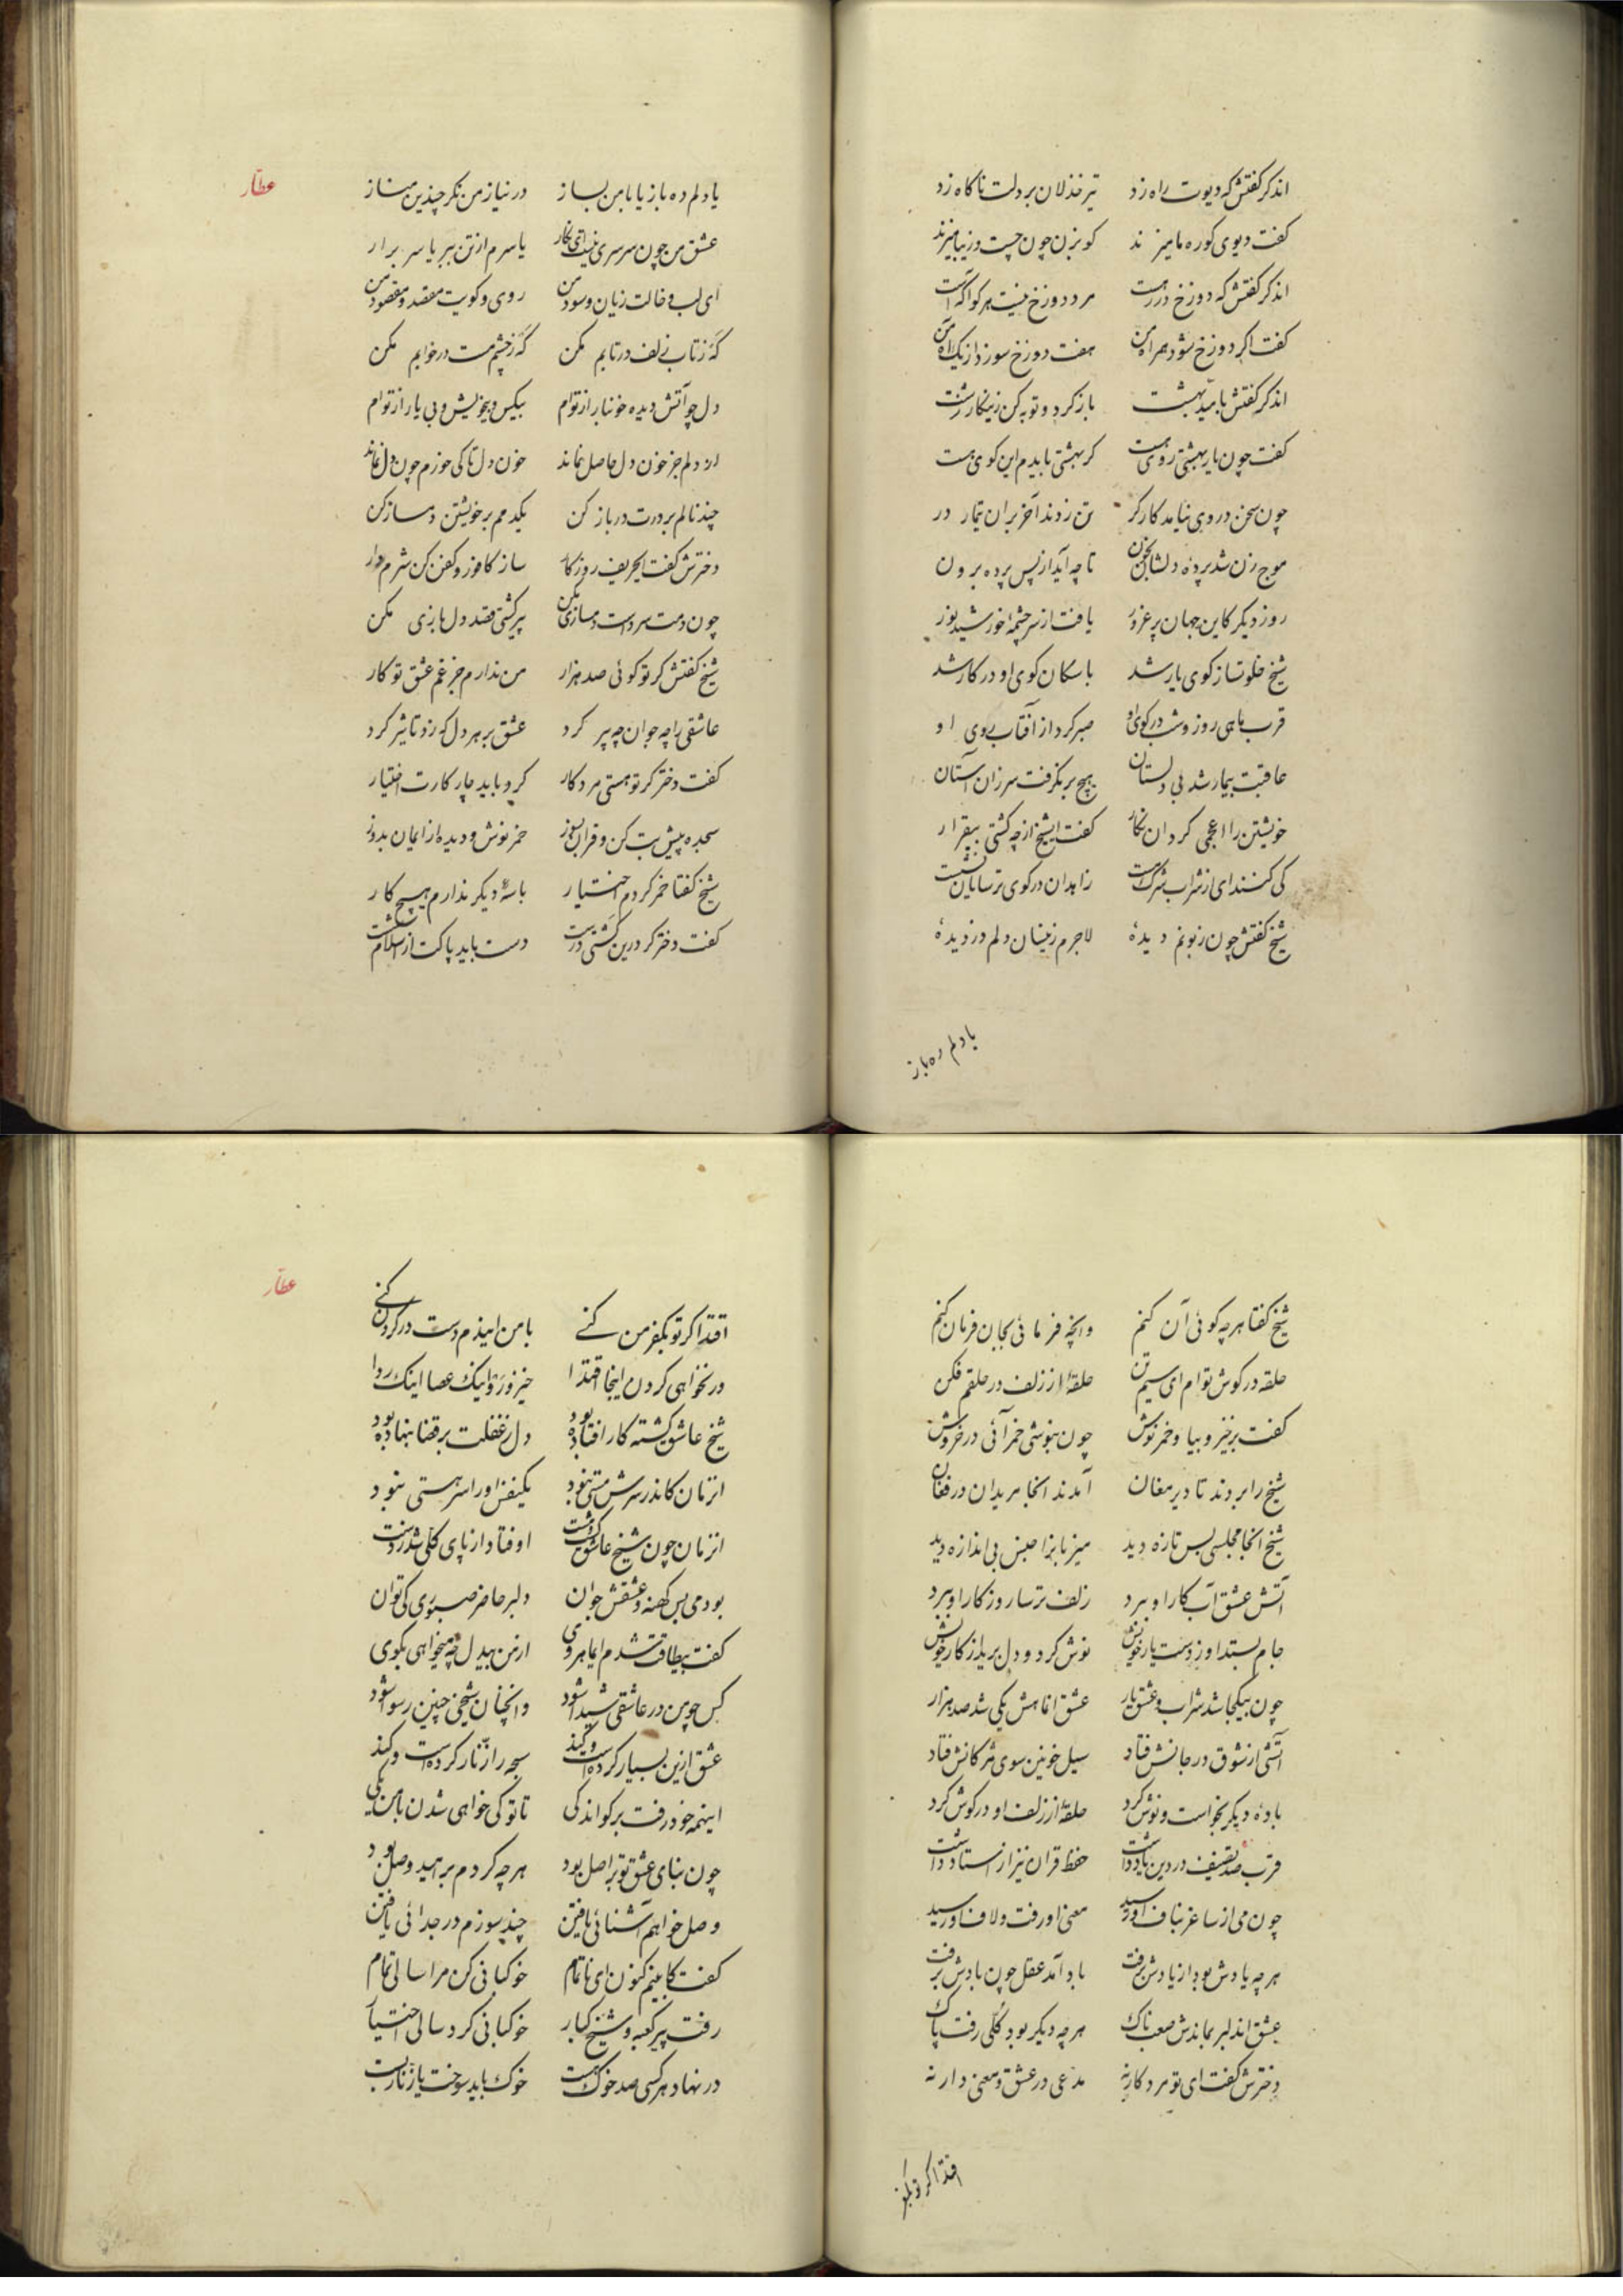 اندکر گفتش که دیوت راه زد تیر خذلان بر دلت ناگاه زد
گفت دیوی کوره ما میزند کو بزن چون چست و زیبا میزند
اندکر گفتش که دوزخ در رهست مرد دوزخ نیست هر کو آگهست
گفت اگر دوزخ شود همراه من هفت دوزخ سوزد از یک آه من
اندکر گفتش بامید بهشت باز کرد و توبه کن زینکار زشت
گفت چون یار بهشتی روی هست گر بهشتی بایدم این کوی هست
چون سخن در وی نیامد کارگر تن زدند آخر بران تیمار در
موج زن شد پردهٔ دلشان بخون تا چه آید از پس پرده برون
روز دیگر کاین جهان پر غرور یافت از سرچشمهٔ خورشید نور
شیخ خلوتساز کوی یار شد با سگان کوی او در کار شد
قرب ماهی روز و شب در کوی او صبر کرد از آفتاب روی او
عاقبت بیمار شد بی دلستان هیچ بر نگرفت سر زان آستان
خویشتن را اعجمی کرد ان نگار گفت ایشیخ از چه گشتی بیقرار
کی کنند ای از شراب شرک مست زاهدان در کوی ترسایان نشست
شیخ گفتش چون زبونم دیدهٔ لاجرم زینسان دلم دزدیدهٔ
یا دلم ده باز
عطّار
یا دلم ده باز یا با من بساز در نیاز من نگر چندین مناز
عشق من چون سرسری نیست ای نگار یا سرم از تن ببر یا سر برار
ای لب و خالت زیان و سود من روی و کویت مقصد و مقصود من
گه ز تاب زلف در تابم مکن گه ز چشم مست در خوابم مکن
دل چو آتش دیده خونبار از توام بیکس و بیخویش و بی یار از توام
از دلم جز خون دل حاصل نماند خون دل تا کی خورم چون دل نماند
چند نالم بر درت در باز کن یکدمم بر خویشتن دمساز کن
دخترش گفت ایحریف روزکار ساز کافور و کفن کن شرم دار
چون دمت سرد است دمسازی مکن پیر گشتی قصد دل بازی مکن
شیخ گفتش گر تو گوئی صد هزار من ندارم جز غم عشق تو کار
عاشقی را چه جوان چه پیر کرد عشق بر هر دل که زد تاثیر کرد
گفت دختر گر تو هستی مرد کار کرد باید چار کارت اختیار
سجده پیش بت کن و قران بسوز خمر نوش و دیده از ایمان بدوز
شیخ گفتا خمر کردم اختیار با سهٔ دیگر ندارم هیچ کار
گفت دختر گر درین گشتی درست دست باید پاکت از اسلام شست
شیخ گفتا هر چه گوئی آن کنم وانچه فرمائی بجان فرمان کنم
حلقه در گوش توام ای سیم تن حلقهٔ از زلف در حلقم فکن
گفت برخیز و بیا و خمر نوش چون بنوشی خمر آئی در خروش
شیخ را بردند تا دیر مغان آمدند انجا مریدان در فغان
شیخ انجا مجلسی بس تازه دید میزبانرا حسن بی اندازه دید
آتش عشق آب کار او ببرد زلف ترسا روزکار او ببرد
جام بستد او ز دست یار خویش نوش کرد و دل برید از کار خویش
چون بیکجا شد شراب و عشق یار عشق انماهش یکی شد صد هزار
آتشی از شوق در جانش فتاد سیل خونین سوی مژگانش فتاد
بادهٔ دیگر بخواست و نوش کرد حلقهٔ از زلف او در گوش کرد
قرب صد تصنیف در دین یاد داشت حفظ قران نیز از استاد داشت
چون می از ساغر بناف او رسید معنی او رفت و لاف او رسید
هر چه یادش بود از یادش برفت باد آمد عقل چون بادش برفت
عشق اندلبر بماندش صعب ناک هر چه دیگر بود کلّی رفت پاک
دخترش گفت ای تو مرد کار نه مدعی در عشق و معنی دار نه
اقتدا گر تو بکفر
عطّار
اقتدا گر تو بکفر من کنے با من ایندم دست در گردن کنے
ور نخواهی کردن اینجا اقتدا خیز و رو اینک عصا اینک ردا
شیخ عاشق گشته کار افتاده بود دل ز غفلت بر قضا بنهاده بود
انزمان کاندر سرش مستی نبود یکنفس او را سر هستی نبود
انزمان چون شیخ عاشق گشت مست اوفتاد از پای کلّی شد ز دست
بود می بس کهنه و عشقش جوان دلبر حاضر صبوری کی توان
گفت بیطاقت شدم ایماهروی از من بیدل چه میخواهی بگوی
کس چو من در عاشقی شیدا شود وانچنان شیخی چنین رسوا شود
عشق ازین بسیار کرده است و کند سبحه را زنّار کرده است و کند
اینهمه خود رفت بر گو اندکی تا تو کی خواهی شدن با من یکی
چون بنای عشق تو بر اصل بود هر چه کردم بر امید وصل بود
وصل خواهم آشنائی یافتن چند سوزم در جدائی یافتن
گفت کابینم کنون ای ناتمام خوکبانی کن مرا سالی تمام
رفت پیر کعبه و شیخ کبار خوکبانی کرد سالی اختیار
در نهاد هر کسی صد خوک هست خوک باید سوخت یا زنّار بست